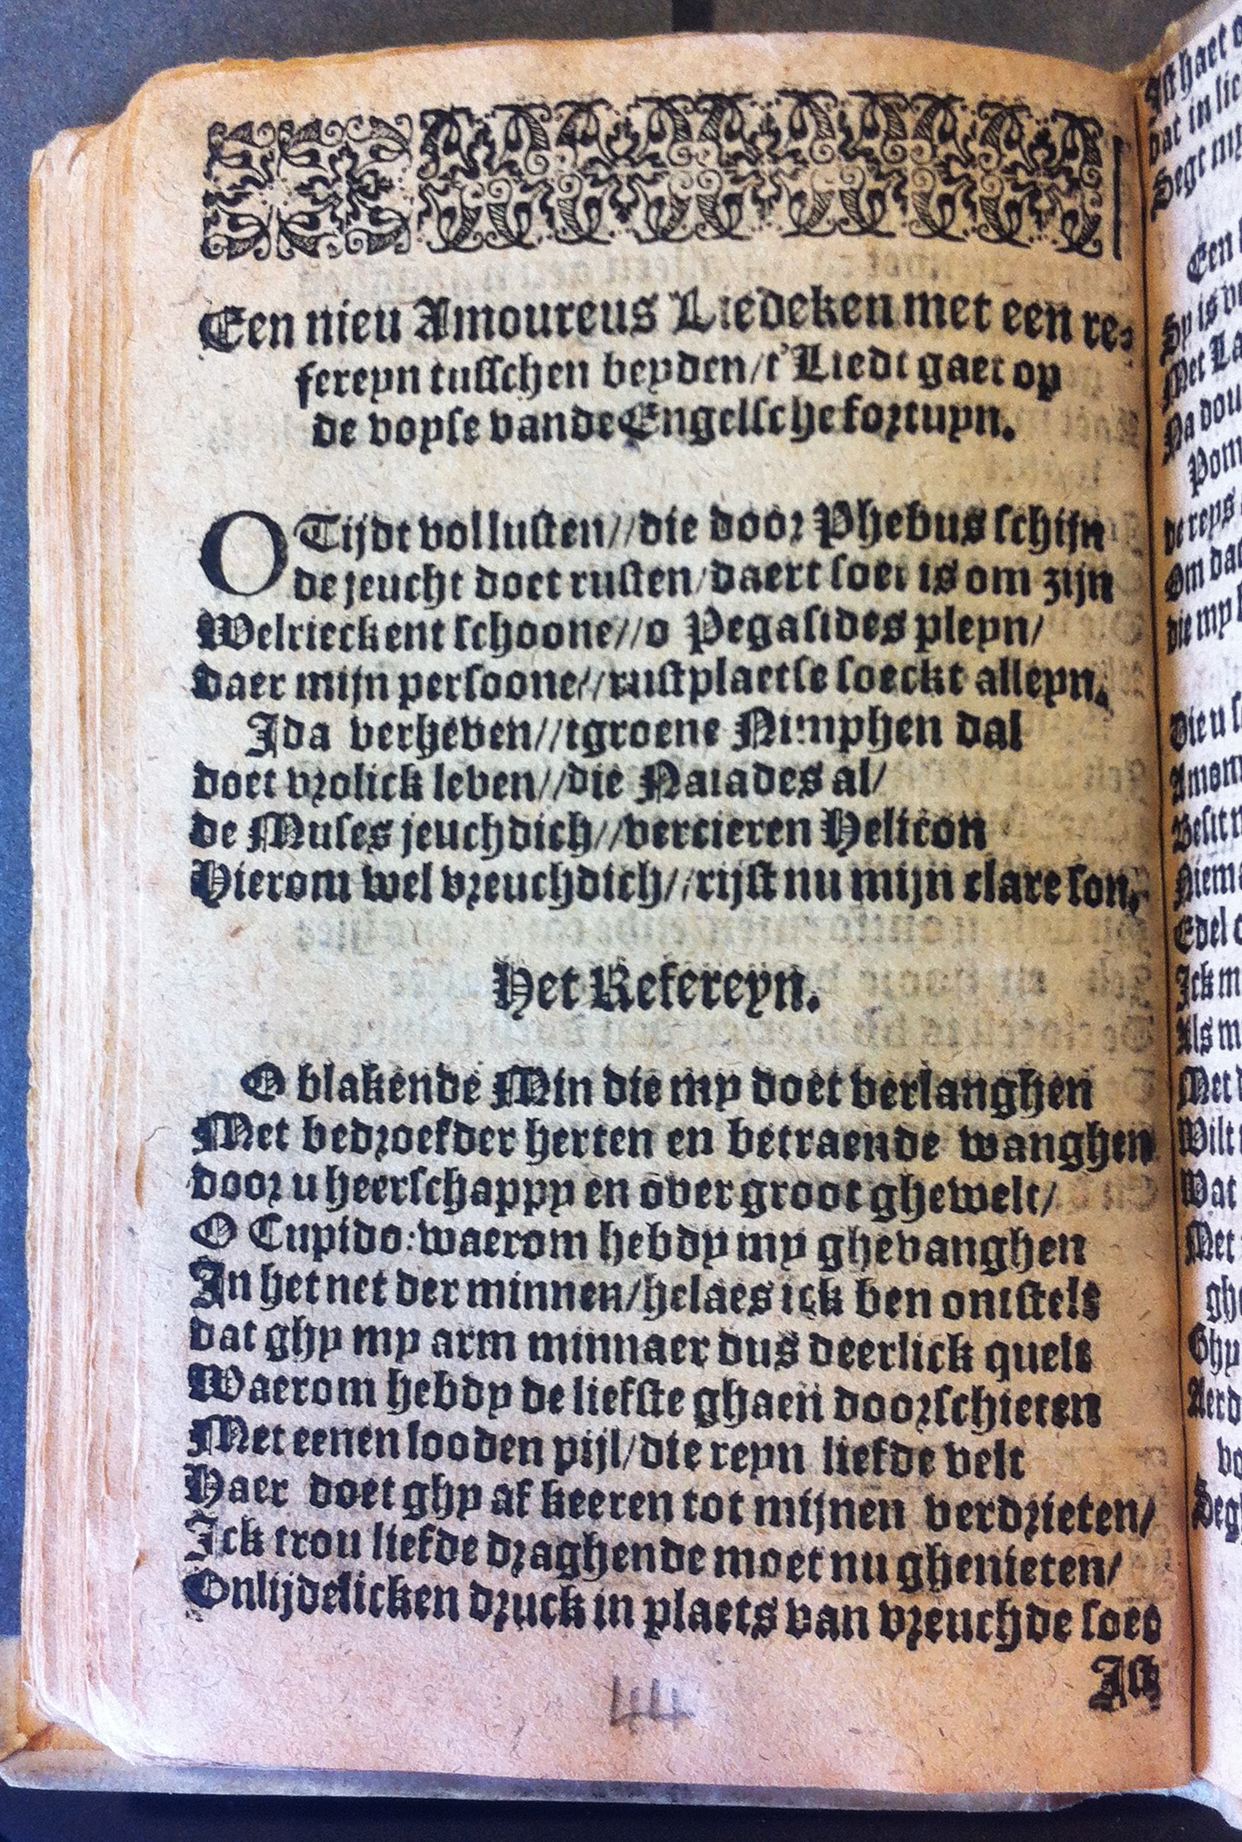 Een nieu Amoureus Liedeken met een re-
fereyn tusschen beyden/t'Liedt gaet op
de voyse vande Engelsche fortuyn.
O Tijdt vol lusten//die door Phebus schijn
de jeucht doet rusten/daert soet is om zijn
Welrieckent schoone//o Pegasides pleyn/
daer mijn persoone//rustplaetse soeckt alleyn.
Ida verheven//tgroene Nimphen dal
doet vrolick leven//die Naiades al/
de Muses jeuchdich//vercieren Helicon
Hierom wel vreuchdich//rijst nu mijn clare son.
Het Refereyn.
O blakende Min die my doet verlanghen
Met bedroefder herten en betraende wanghen
door u heerschappy en over groot ghewelt/
O Cupido: waerom hebdy my ghevanghen
In het net der minnen/helaes ick ben ontstelt
dat ghy my arm minnaer dus deerlick quelt
Waerom hebdy de liefste ghaen doorschieten
Met eenen looden pijl/die reyn liefde velt
Haer doet ghy af keeren tot mijnen verdrieten/
Ick trou liefde draghende moet nu ghenieten/
Onlijdelicken druck in plaets van vreuchde soet
Ick
44
Ist haet
dat in
Seght my
Een
Sy is
Met
Na
Pom
de reys
Om dat
die my
Die u
Besit
Niema
Edel
Ick m
Als m
Met
Wilt
Wat
Met
ghe
Ghy
Aerd
vo
Segh